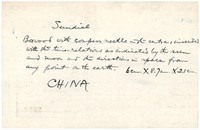 Sundial
Boxwood with compass needle in the centre, inscribed
with the time relations as indicated by the sun
and moon and the directions in space from
any point on the earth. 6cm x 8.7cm x 2.3cm
CHINA